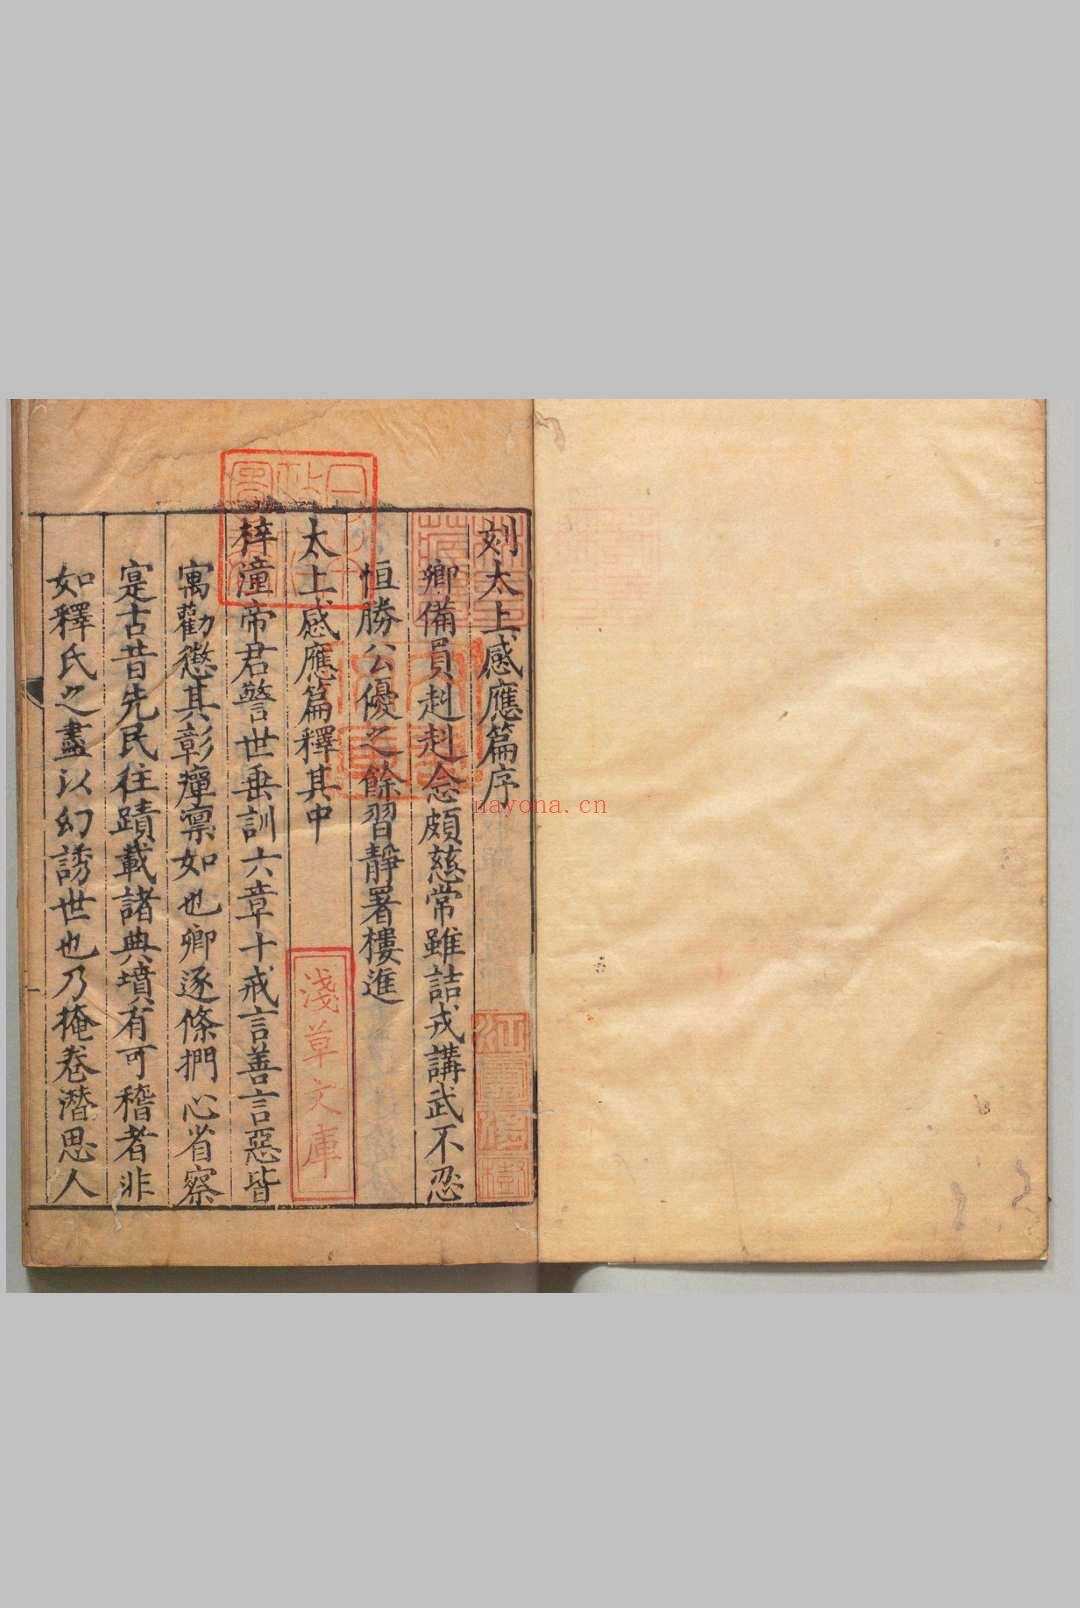 刻太上感應篇序
卿備員赳赳念頗慈常雖詰戎講武不忍
恒勝公優之餘習靜署樓進
太上感應篇釋其中
梓潼帝君警世垂訓六章十戒言善言惡皆
寓勸懲其彰癉凛如也卿逐條捫心省察
寔古昔先民往蹟載諸典墳有可稽者非
如釋氏之盡以幻誘世也乃掩卷潛思人
淺草文庫
nayona.cn